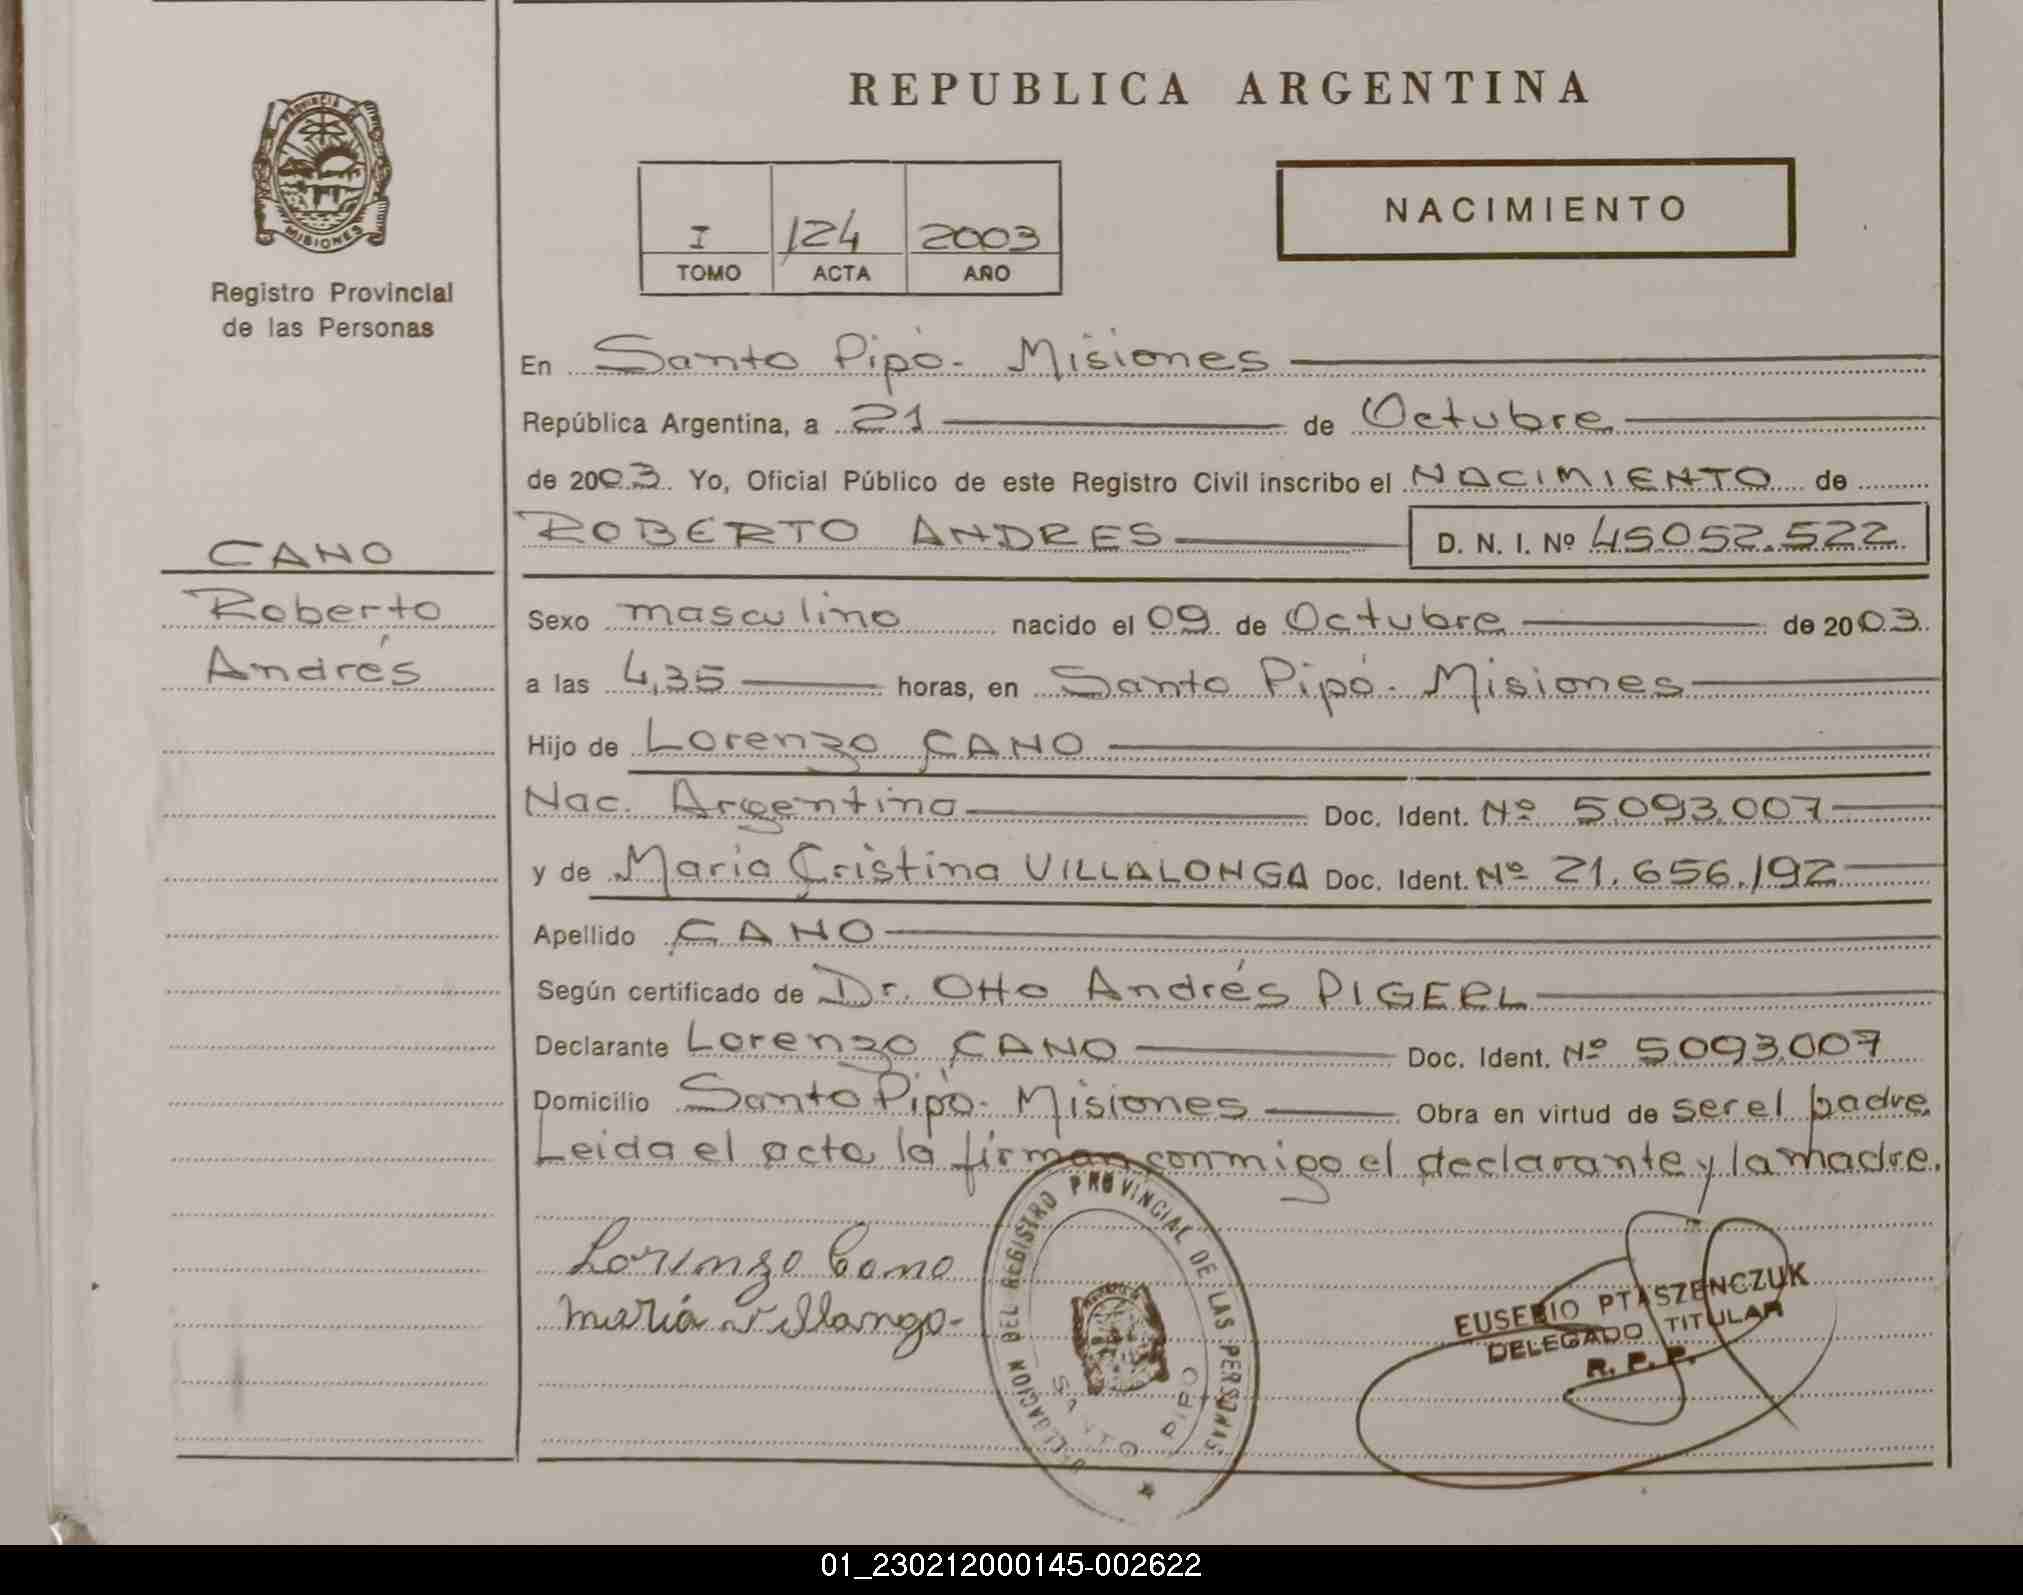 REPUBLICA ARGENTINA
PROVINCIA DE
MISIONES
Registro Provincial
de las Personas
I 124 2003
TOMO ACTA AÑO
NACIMIENTO
En Santo Pipó - Misiones
República Argentina, a 21 de Octubre
de 2003. Yo, Oficial Público de este Registro Civil inscribo el NACIMIENTO de
ROBERTO ANDRES D. N. I. Nº 45.052.522
CANO
Roberto
Andrés
Sexo masculino nacido el 09 de Octubre de 2003.
a las 4,35 horas, en Santo Pipó - Misiones
Hijo de Lorenzo CANO
Nac. Argentina Doc. Ident. Nº 5.093.007
y de Maria Cristina VILLALONGA Doc. Ident. Nº 21.656.192
Apellido CANO
Según certificado de Dr. Otto Andrés PIGERL
Declarante Lorenzo CANO Doc. Ident. Nº 5.093.007
Domicilio Santo Pipó - Misiones Obra en virtud de ser el padre
Leida el acta la firman conmigo el declarante y la madre.
Lorenzo Cano
maria villango-
DELEGACION DEL REGISTRO PROVINCIAL DE LAS PERSONAS
SANTO PIPO
EUSEBIO PTASZENCZUK
DELEGADO TITULAR
R. P. P.
01_230212000145-002622